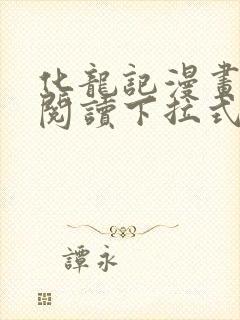 化龍記漫畫
閱讀下拉式
譚永